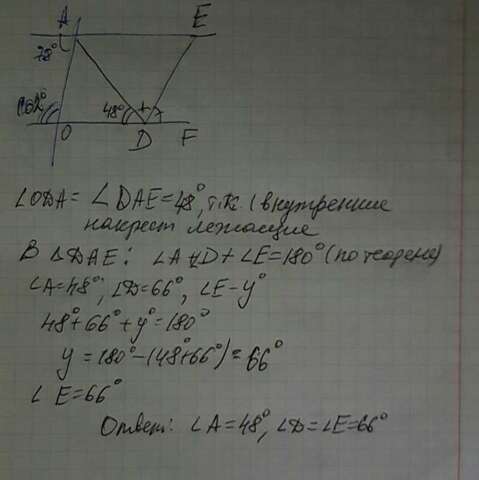 A E
78°
102° 48°
O D F
∠ODA = ∠DAE = 48°, т.к. (внутренние
накрест лежащие
В △DAE: ∠A ∠D + ∠E = 180° (по теореме)
∠A = 48°, ∠D = 66°, ∠E - y°
48° + 66° + y° = 180°
y = 180° - (48° + 66°) = 66°
∠E = 66°
Ответ: ∠A = 48°, ∠D = ∠E = 66°